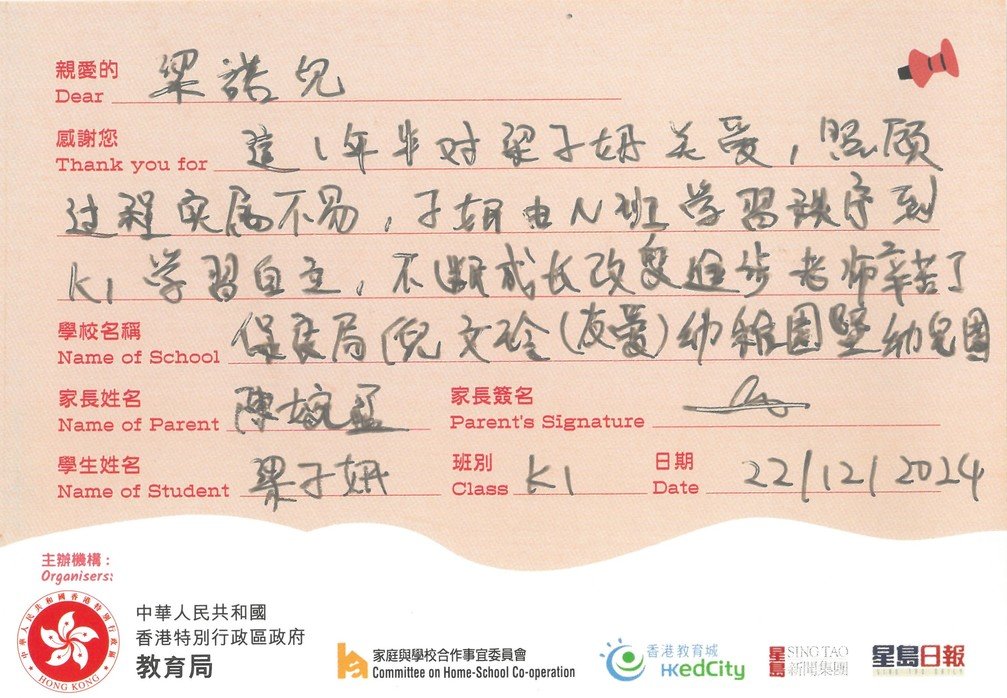 親愛的
Dear 梁諾兒
感謝您
Thank you for 這1年半对梁子妍关爱，照顾
过程实属不易，子妍由N班学習秩序到
K1学習自主，不断成长改变進步老师辛苦了
學校名稱
Name of School 保良局倪文玲(友愛)幼稚園暨幼兒園
家長姓名 家長簽名
Name of Parent 陳婉盈 Parent's Signature
學生姓名 班別 日期
Name of Student 梁子妍 Class K1 Date 22/12/2024
主辦機構：
Organisers:
中華人民共和國香港特別行政區
HONG KONG
中華人民共和國
香港特別行政區政府
教育局
家庭與學校合作事宜委員會
Committee on Home-School Co-operation
香港教育城
HKedCity
星島 SING TAO
新聞集團
星島日報
SING TAO DAILY